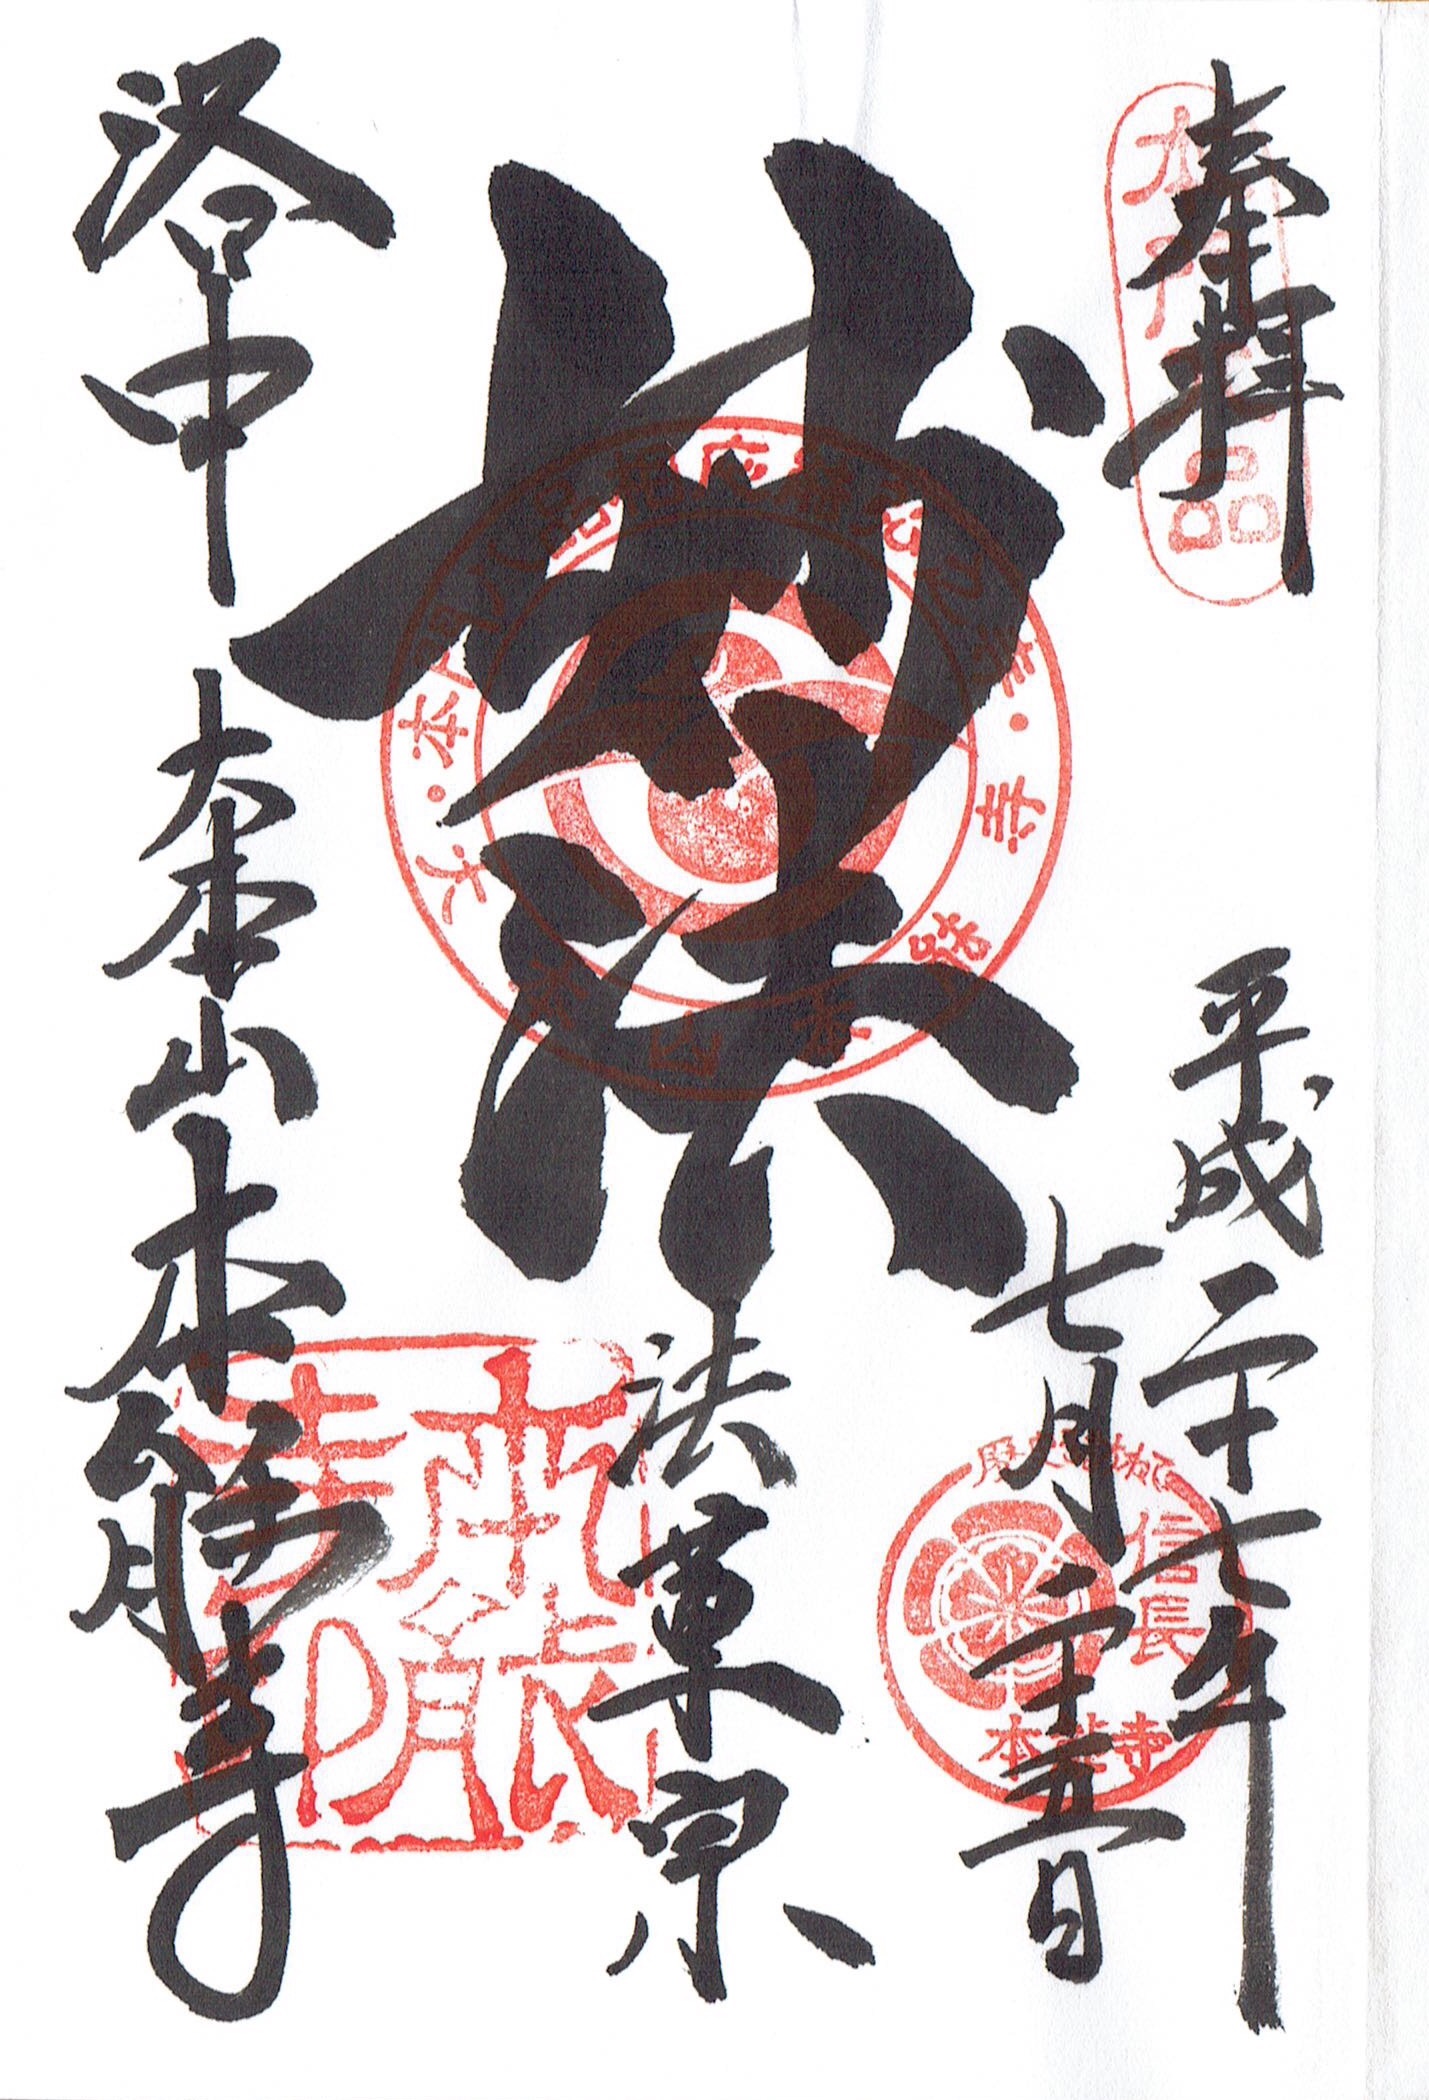 奉拝
本門八品
平成二十七年
七月二十五日
信長
本能寺
妙法
法華宗
洛中
大本山本能寺
本能寺印